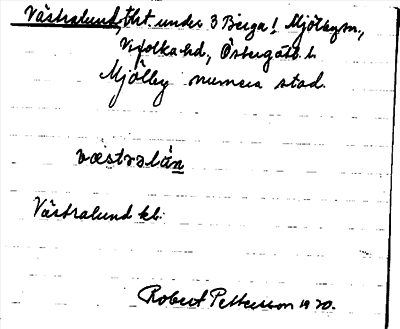 Västralund, tht under 3 Berga! Mjölby sn.,
Vifolka hd, Östergötl. l.
Mjölby numera stad.
væstralún
Västralund kb.
Robert Pettersson 1920.